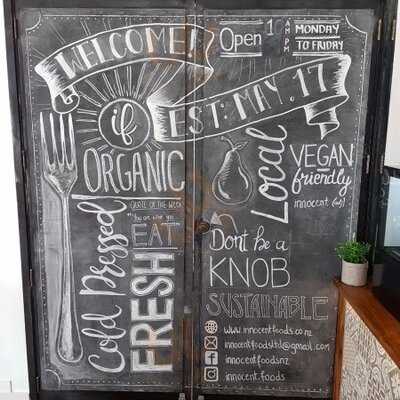 WELCOME!
Open
AM
PM
MONDAY
TO FRIDAY
EST: MAY .17
if
ORGANIC
Local
VEGAN
friendly
innocent
Cold Pressed
QUOTE OF THE WEEK
EAT
FRESH
Dont be a
KNOB
SUSTAINABLE
www.innocentfoods.co.nz
innocentfoodsltd@gmail.com
innocentfoodsnz
innocent.foods